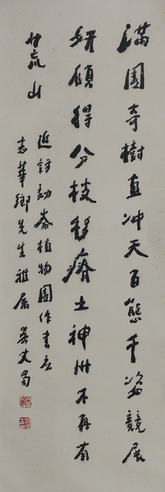 满园奇樹直冲天百態千姿競展
妍願得分枝移瘠土神州不再有
荒山
近訪勐崙植物園作書应
志華鄉先生雅屬 吴丈蜀